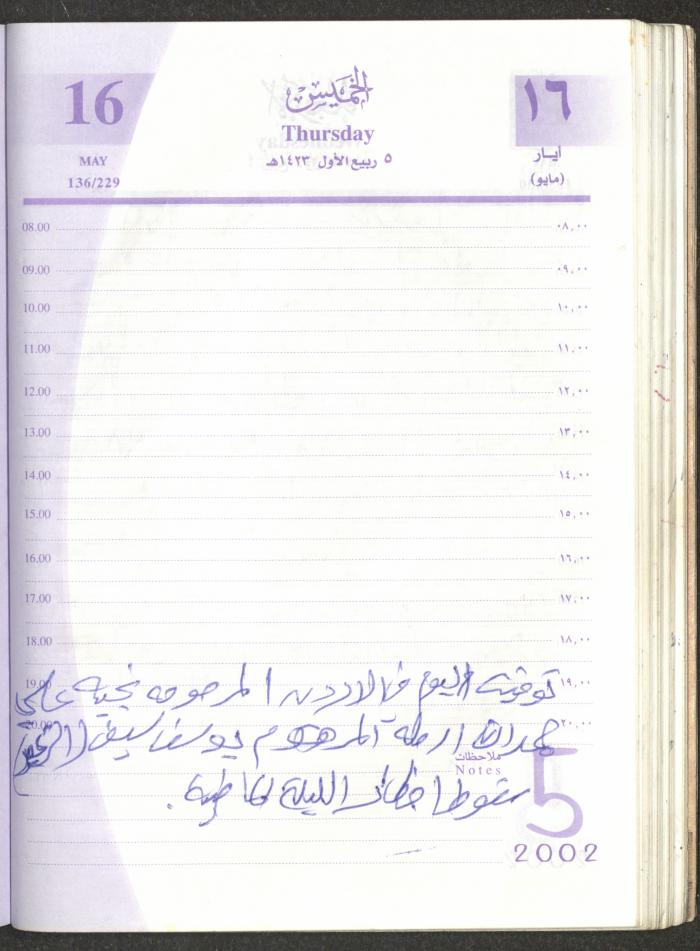 16
الخميس
١٦
Thursday
MAY
أيـار
٥ ربيع الأول ١٤٢٣هـ
136/229
(مايو)
08.00 ٠٨,٠٠
09.00 ٠٩,٠٠
10.00 ١٠,٠٠
11.00 ١١,٠٠
12.00 ١٢,٠٠
13.00 ١٣,٠٠
14.00 ١٤,٠٠
15.00 ١٥,٠٠
16.00 ١٦,٠٠
17.00 ١٧,٠٠
18.00 ١٨,٠٠
19.00 ١٩,٠٠
توفيت اليوم في الاردن المرحومة نجية علي
20.00 ٢٠,٠٠
حمدالله ارملة المرحوم يوسف
ملاحظات
Notes
سقوط امطار الليلة الماضية.
5
2002